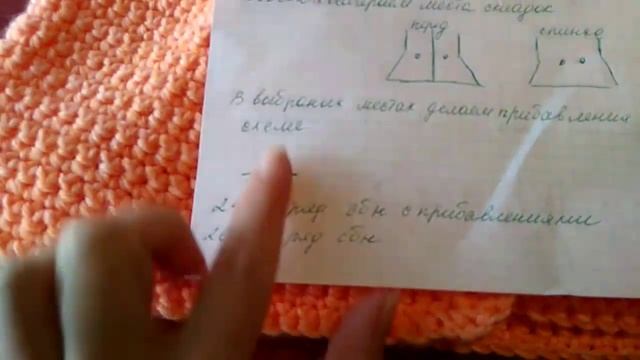 места складок
перед спинка
В выбраных местах делаем прибавления
схеме
ряд сбн с прибавлениями
ряд сбн